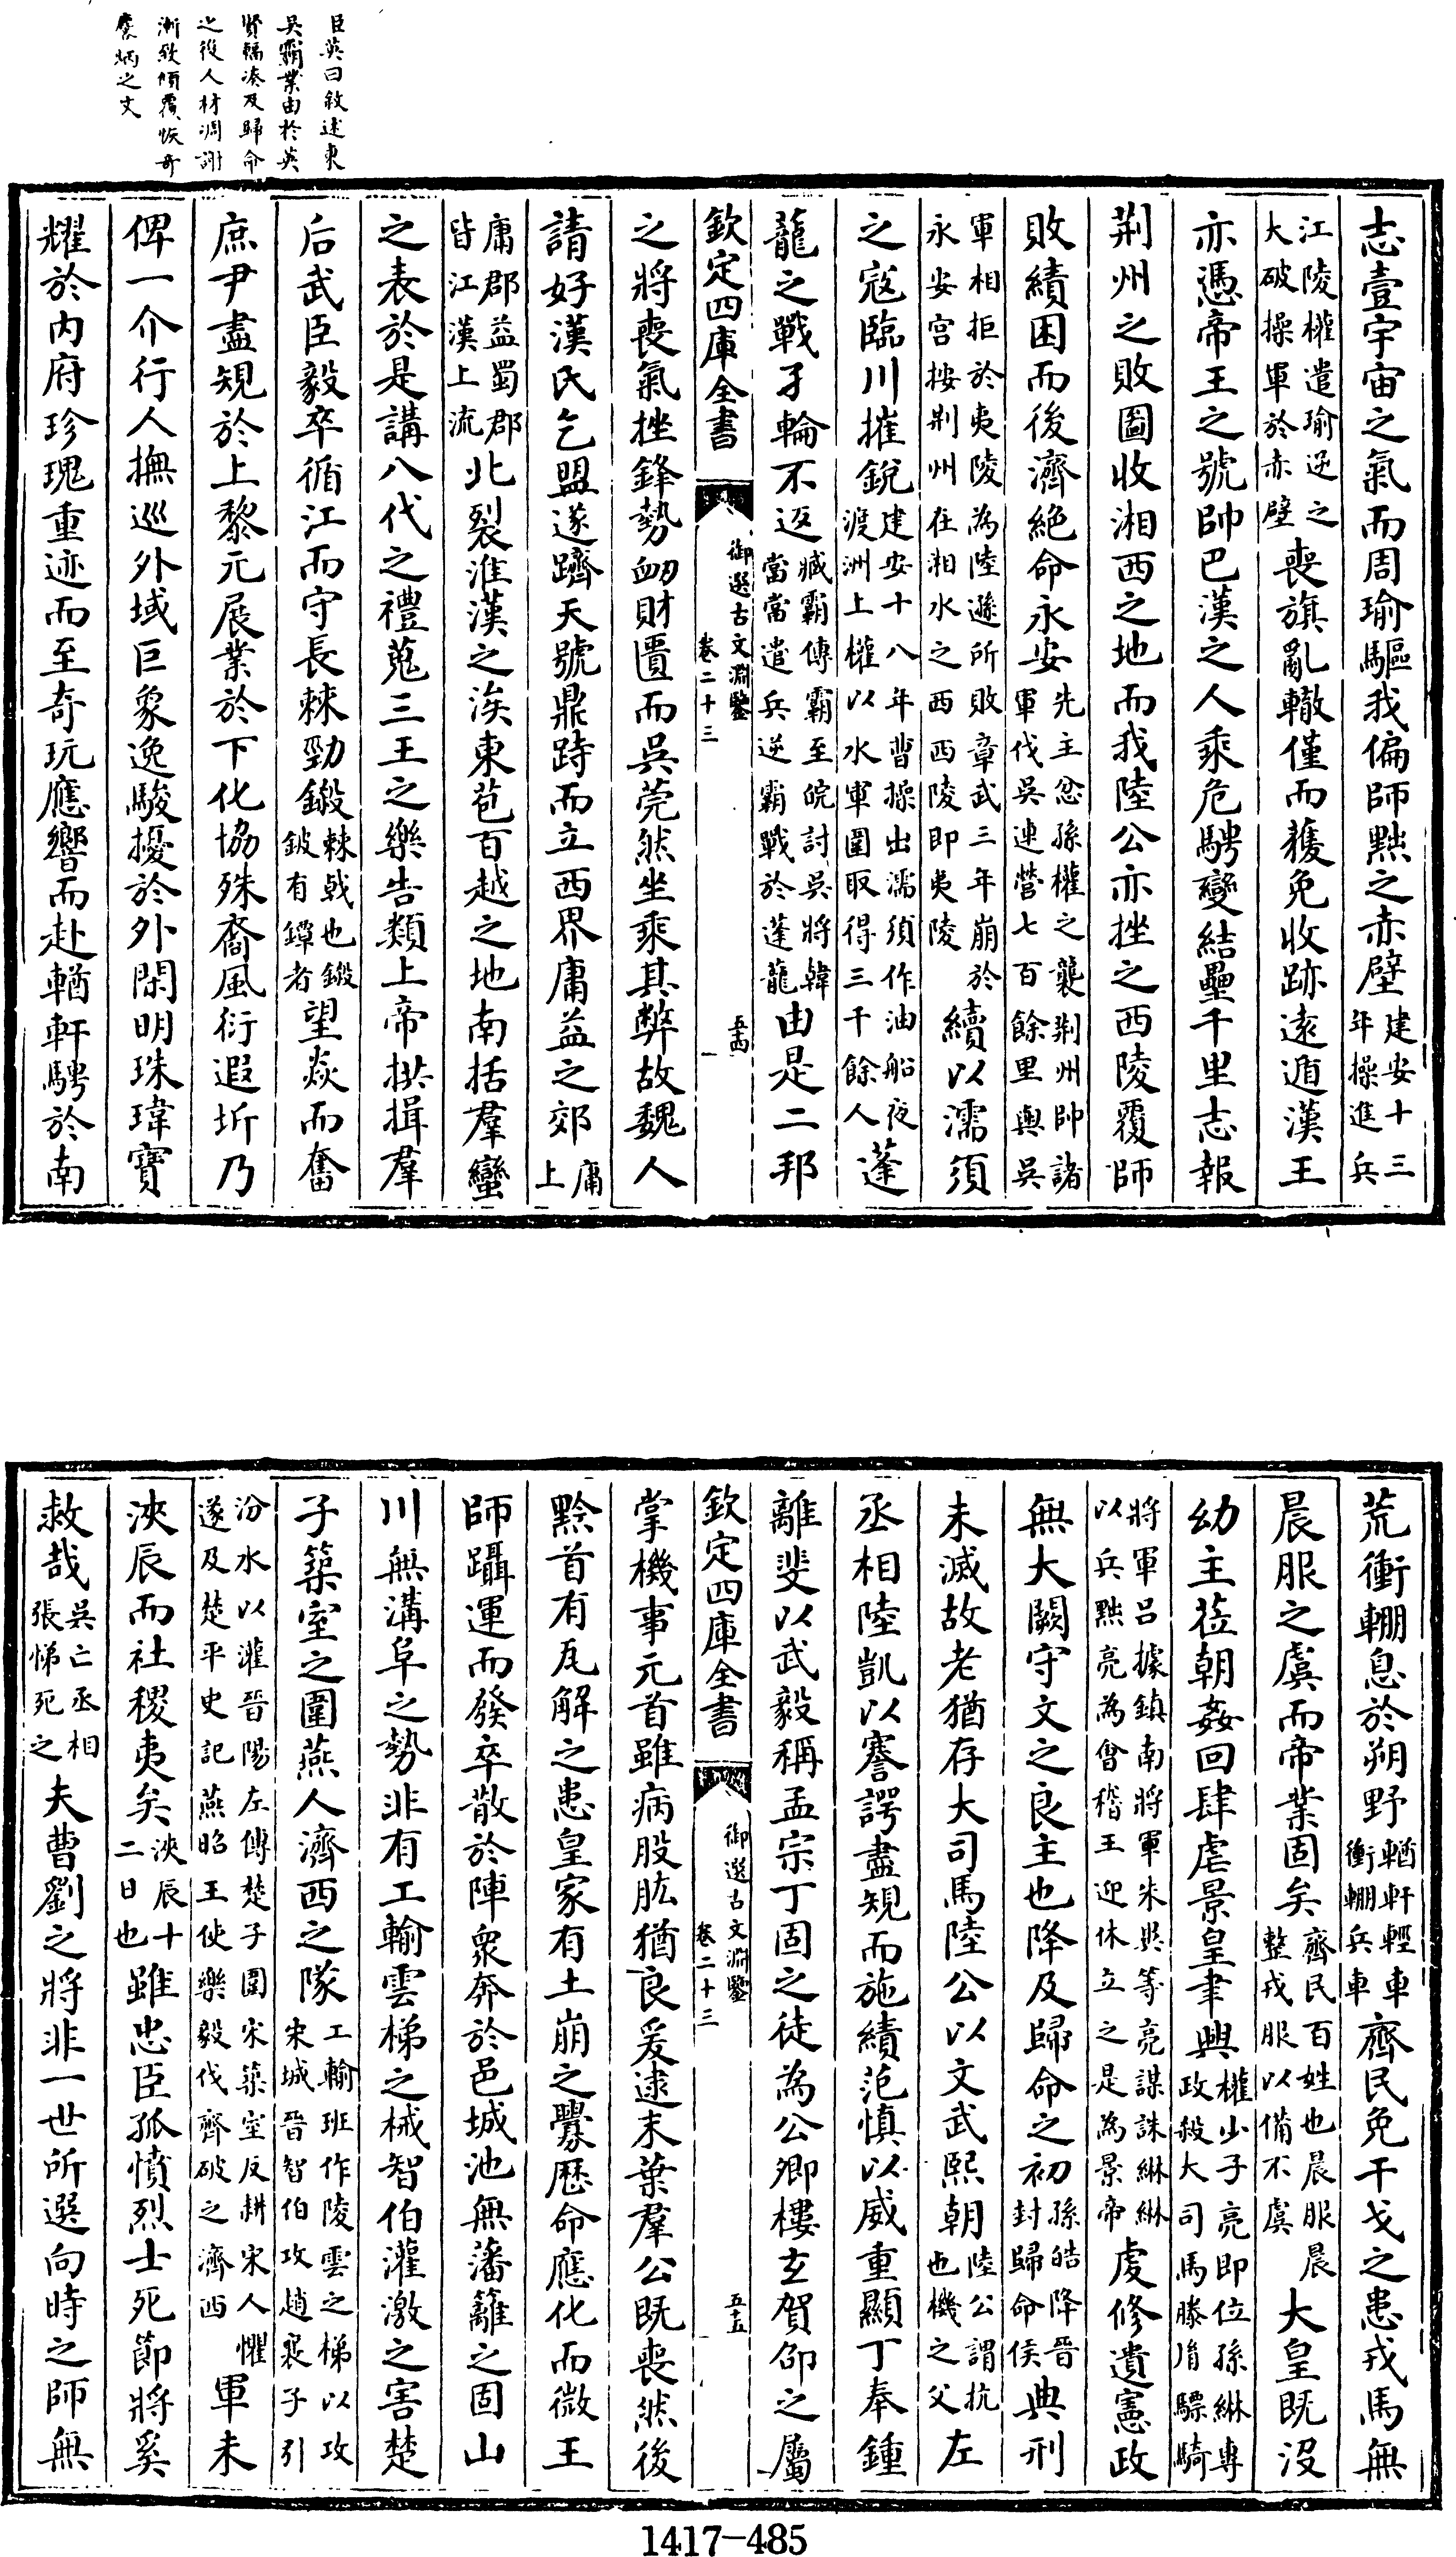 臣英曰敘述東
吳霸業由於英
賢輻湊及歸命
之後人材凋謝
漸致傾覆恢奇
麃炳之文
志壹宇宙之氣而周瑜驅我偏師黜之赤壁建安十三年操進兵
江陵權遣瑜逆之大破操軍於赤壁喪旗亂轍僅而獲免收跡遠遁漢王
亦憑帝王之號帥巴漢之人乘危騁變結壘千里志報
荆州之敗圖收湘西之地而我陸公亦挫之西陵覆師
敗績困而後濟絕命永安先主忿孫權之襲荆州帥諸軍伐吳連營七百餘里與吳
軍相拒於夷陵為陸遜所敗章武三年崩於永安宮按荆州在湘水之西西陵即夷陵續以濡須
之寇臨川摧銳建安十八年曹操出濡須作油船夜渡洲上權以水軍圍取得三千餘人蓬
蘢之戰孑輪不返臧霸傳霸至皖討吳將韓當當遣兵逆霸戰於蓬蘢由是二邦
欽定四庫全書
御選古文淵鑒
卷二十三
五十四
之將喪氣挫鋒勢衂財匱而吳莞然坐乘其弊故魏人
請好漢氏乞盟遂躋天號鼎跱而立西界庸益之郊庸上
庸郡益蜀郡皆江漢上流北裂淮漢之涘東苞百越之地南括羣蠻
之表於是講八代之禮蒐三王之樂告類上帝拱揖羣
后武臣毅卒循江而守長棘勁鎩棘戟也鎩鈹有鐔者望焱而奮
庶尹盡規於上黎元展業於下化協殊裔風衍遐圻乃
俾一介行人撫巡外域巨象逸駿擾於外閑明珠瑋寶
耀於內府珍瑰重迹而至奇玩應響而赴輶軒騁於南
荒衝輣息於朔野輶軒輕車衝輣兵車齊民免干戈之患戎馬無
晨服之虞而帝業固矣齊民百姓也晨服晨整戎服以備不虞大皇既沒
幼主莅朝姦回肆虐景皇聿興權少子亮即位孫綝專政殺大司馬滕胤驃騎
將軍呂據鎮南將軍朱異等亮謀誅綝綝以兵黜亮為會稽王迎休立之是為景帝虔修遺憲政
無大闕守文之良主也降及歸命之初孫皓降晉封歸命侯典刑
未滅故老猶存大司馬陸公以文武熙朝陸公謂抗也機之父左
丞相陸凱以謇諤盡規而施績范慎以威重顯丁奉鍾
離斐以武毅稱孟宗丁固之徒為公卿樓玄賀邵之屬
欽定四庫全書
御選古文淵鑒
卷二十三
五十五
掌機事元首雖病股肱猶良爰逮末葉羣公既喪然後
黔首有瓦解之患皇家有土崩之釁歷命應化而微王
師躡運而發卒散於陣衆奔於邑城池無藩籬之固山
川無溝阜之勢非有工輸雲梯之械智伯灌激之害楚
子築室之圍燕人濟西之隊工輸班作陵雲之梯以攻宋城晉智伯攻趙襄子引
汾水以灌晉陽左傳楚子圍宋築室反耕宋人懼遂及楚平史記燕昭王使樂毅伐齊破之濟西軍未
浹辰而社稷夷矣浹辰十二日也雖忠臣孤憤烈士死節將奚
救哉吳亡丞相張悌死之夫曹劉之將非一世所選向時之師無
1417-485